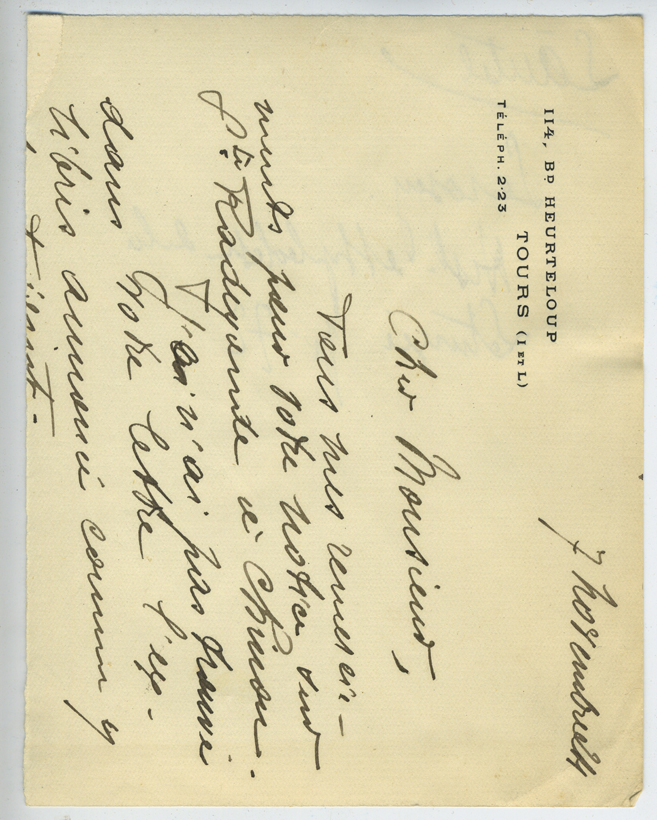 114, BD HEURTELOUP
TOURS (I ET L)
TÉLÉPH. 2.23
7 novembre
Cher Monsieur,
Tous mes remercie-
ments pour votre notice sur
Ste Radegonde à Chinon.
Je n'ai pas trouvé
dans votre lettre l'ex-
libris annoncé comme y
étant.